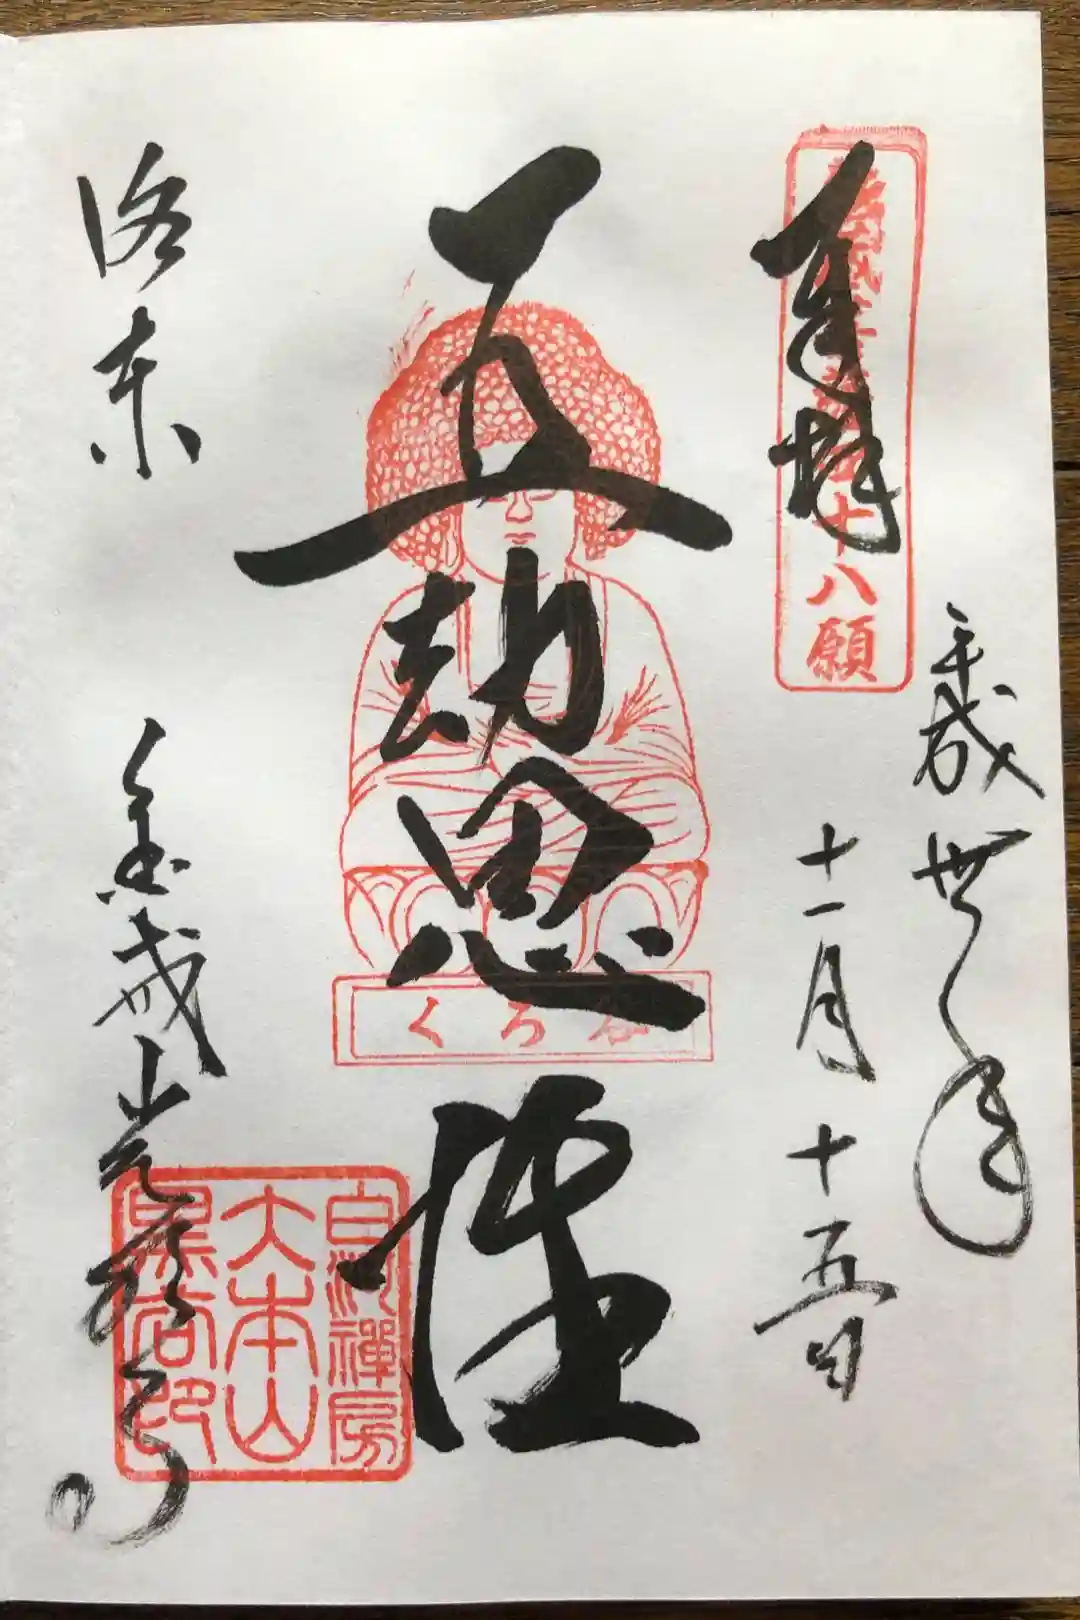 奉拝
十八願
平成卅年
十一月十五日
五劫思惟
くろ谷
洛東
金戒光明寺
白河禪房
大本山
黒谷印